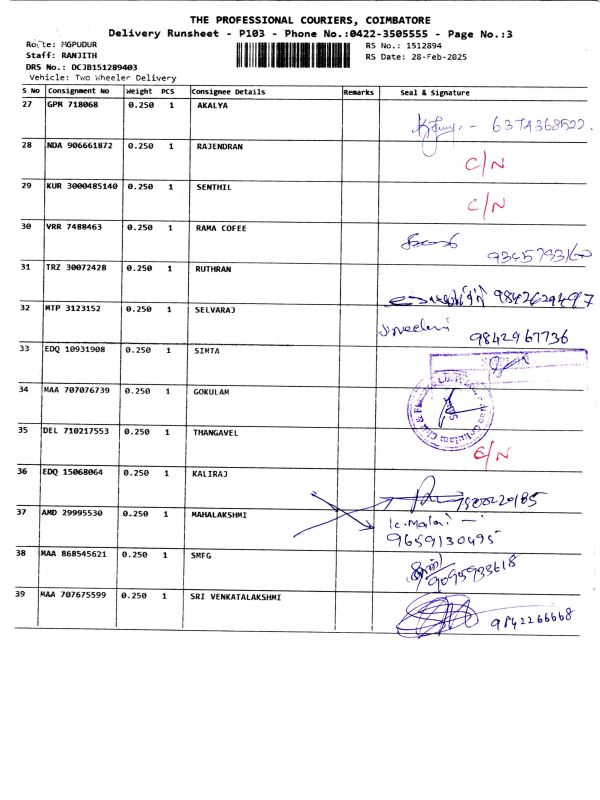 THE PROFESSIONAL COURIERS, COIMBATORE
Delivery Runsheet - P103 - Phone No.:0422-3505555 - Page No.:3
Route: MGPUDUR
RS No.: 1512894
Staff: RANJITH
RS Date: 28-Feb-2025
DRS No.: DCJB151289403
Vehicle: Two Wheeler Delivery
S No Consignment No Weight PCS Consignee Details Remarks Seal & Signature
27 GPM 718068 0.250 1 AKALYA
6374368522.
28 NDA 906661872 0.250 1 RAJENDRAN
C/N
29 KUR 3000485140 0.250 1 SENTHIL
C/N
30 VRR 7488463 0.250 1 RAMA COFEE
31 TRZ 30072428 0.250 1 RUTHRAN
9842629497
32 MTP 3123152 0.250 1 SELVARAJ
9842967736
33 EDQ 10931908 0.250 1 SIMTA
34 MAA 707076739 0.250 1 GOKULAM
35 DEL 710217553 0.250 1 THANGAVEL
C/N
36 EDQ 15068064 0.250 1 KALIRAJ
37 AMD 29995530 0.250 1 MAHALAKSHMI
9659130495
38 MAA 868545621 0.250 1 SMFG
9095933618
39 MAA 707675599 0.250 1 SRI VENKATALAKSHMI
9842266668